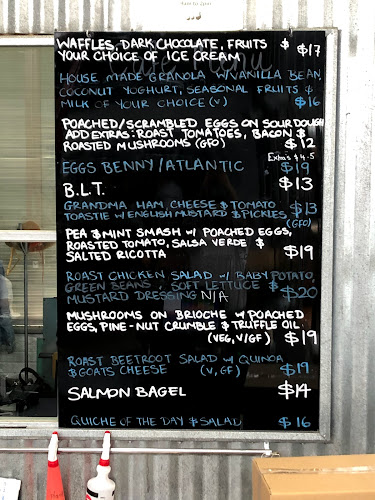 WAFFLES, DARK CHOCOLATE, FRUITS $ $17
YOUR CHOICE OF ICE CREAM
HOUSE MADE GRANOLA W/VANILLA BEAN,
COCONUT YOGHURT, SEASONAL FRUITS &
MILK OF YOUR CHOICE (V) $16
POACHED/SCRAMBLED EGGS ON SOURDOUGH
ADD EXTRAS: ROAST TOMATOES, BACON &
ROASTED MUSHROOMS (GFO) $12
Extra's $4-5
EGGS BENNY/ATLANTIC $19
B.L.T. $13
GRANDMA HAM, CHEESE & TOMATO
TOASTIE W ENGLISH MUSTARD & PICKLES $13
(GFO)
PEA & MINT SMASH W/ POACHED EGGS,
ROASTED TOMATO, SALSA VERDE &
SALTED RICOTTA $19
ROAST CHICKEN SALAD W/ BABY POTATO,
GREEN BEANS, SOFT LETTUCE &
MUSTARD DRESSING N/A $20
MUSHROOMS ON BRIOCHE W POACHED
EGGS, PINE-NUT CRUMBLE & TRUFFLE OIL
(VEG, V/GF) $19
ROAST BEETROOT SALAD W/ QUINOA
& GOATS CHEESE (V, GF) $19
SALMON BAGEL $14
QUICHE OF THE DAY & SALAD $16